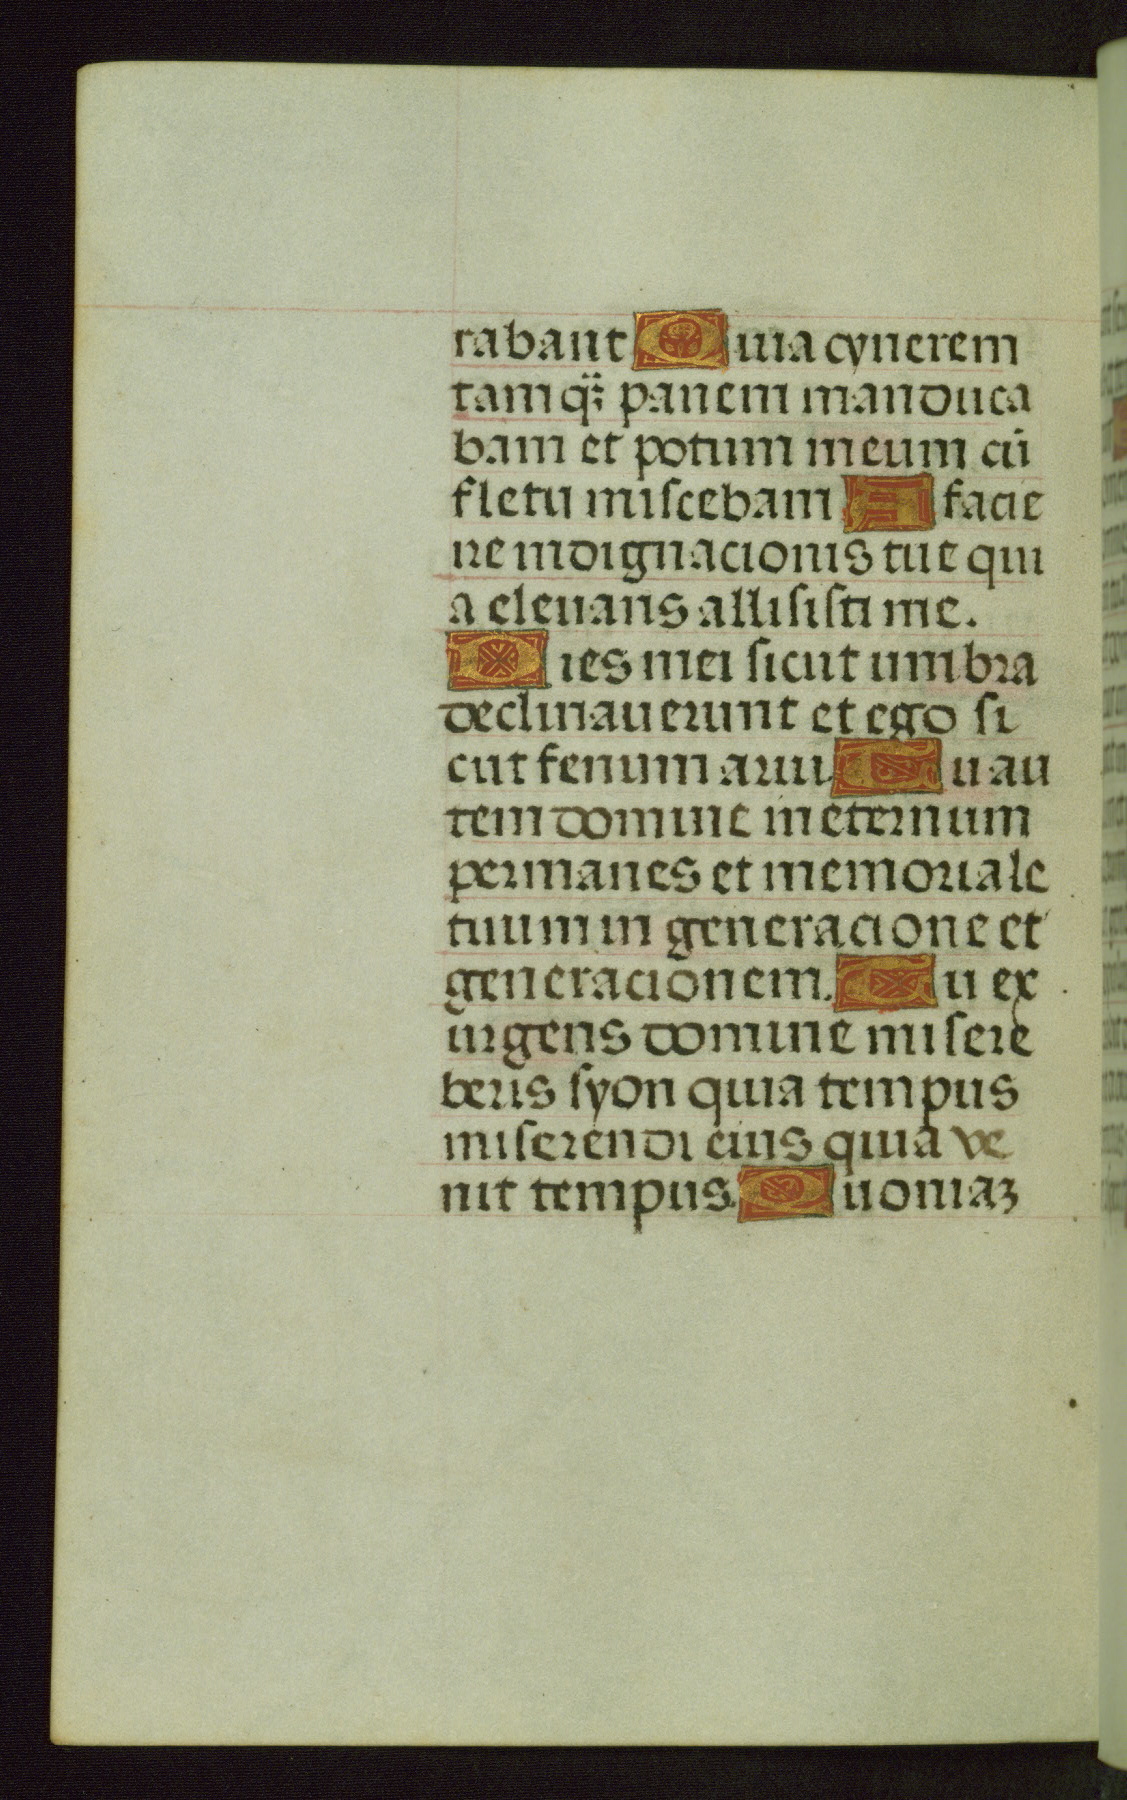 rabant Quia cynerem
tamq̃ꝫ panem manduca
bam et potum meum cū
fletu miscebam A facie
ire indignacionis tue qui
a eleuans allisisti me.
Dies mei sicut umbra
declinauerunt et ego si
cut fenum arui. Tu au
tem domine in eternum
permanes et memoriale
tuum in generacione et
generacionem. Tu ex
urgens domine misere
beris syon quia tempus
miserendi eius quia ve
nit tempus. Quoniaꝫ